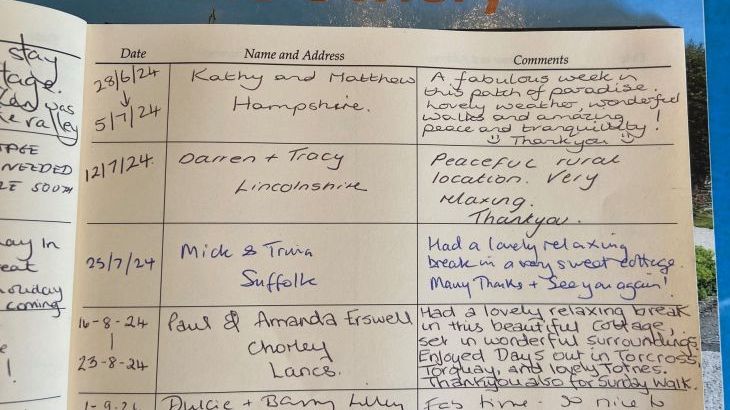 stay
tage.
was
e valley
TAGE
NEEDED
LE SOUTH
ay In
eat
oliday
coming
!
Date Name and Address Comments
28/6/24
↓
5/7/24
Kathy and Matthew
Hampshire.
A fabulous week in
this patch of paradise.
Lovely weather, wonderful
walks and amazing
peace and tranquility!
Thankyou
12/7/24
Darren + Tracy
Lincolnshire
Peaceful rural
location. Very
relaxing.
Thankyou.
25/7/24
Mick &
Suffolk
Had a lovely relaxing
break in a very sweet cottage.
Many Thanks + See you again!
16-8-24
|
23-8-24
Paul & Amanda Erswell
Chorley
Lancs.
Had a lovely relaxing break
in this beautiful cottage,
set in wonderful surroundings
Enjoyed Days out in Torcross,
Torquay, and lovely Totnes.
Thankyou also for Sunday Walk.
Dulcie + Barry
time - So nice to